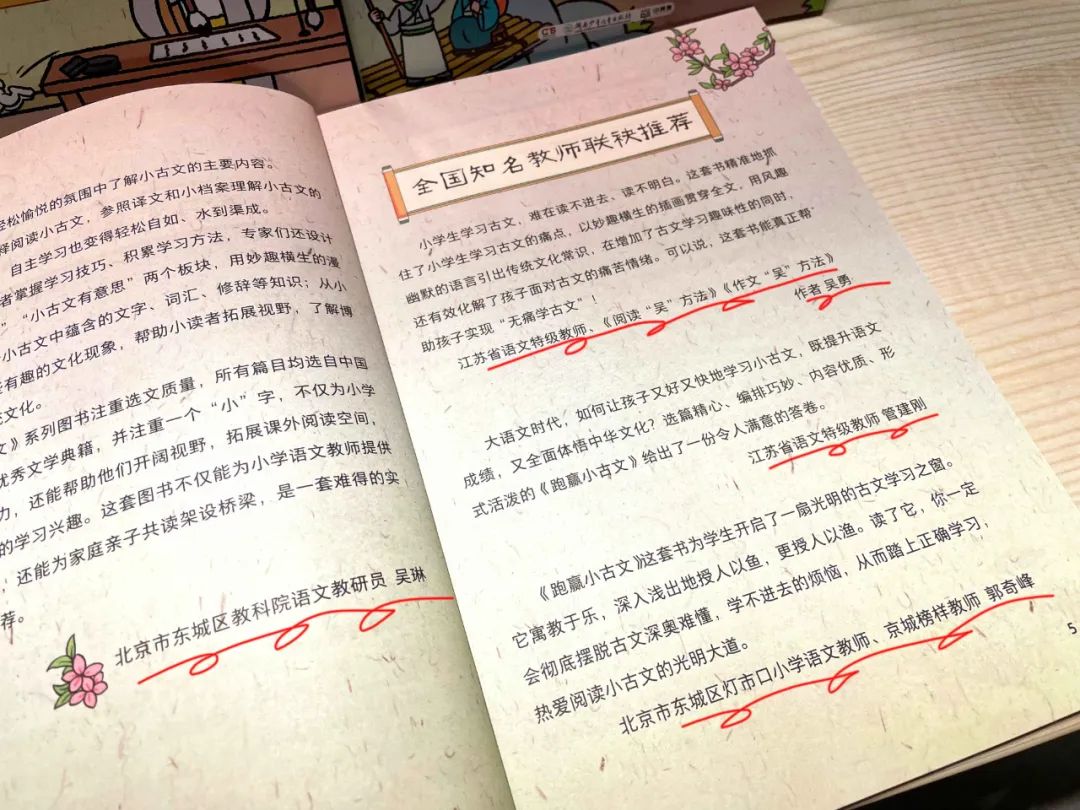 轻松愉悦的氛围中了解小古文的主要内容。
释阅读小古文，参照译文和小档案理解小古文的
自主学习也变得轻松自如、水到渠成。
者掌握学习技巧、积累学习方法，专家们还设计
”“小古文有意思”两个板块，用妙趣横生的漫
小古文中蕴含的文字、词汇、修辞等知识；从小
些有趣的文化现象，帮助小读者拓展视野，了解博
文化。
文》系列图书注重选文质量，所有篇目均选自中国
优秀文学典籍，并注重一个“小”字，不仅为小学
力，还能帮助他们开阔视野，拓展课外阅读空间，
的学习兴趣。这套图书不仅能为小学语文教师提供
，还能为家庭亲子共读架设桥梁，是一套难得的实
荐。
北京市东城区教科院语文教研员 吴琳
全国知名教师联袂推荐
小学生学习古文，难在读不进去、读不明白。这套书精准地抓
住了小学生学习古文的痛点，以妙趣横生的插画贯穿全文，用风趣
幽默的语言引出传统文化常识，在增加了古文学习趣味性的同时，
还有效化解了孩子面对古文的痛苦情绪。可以说，这套书能真正帮
助孩子实现“无痛学古文”！
江苏省语文特级教师、《阅读“吴”方法》《作文“吴”方法》
作者 吴勇
大语文时代，如何让孩子又好又快地学习小古文，既提升语文
成绩，又全面体悟中华文化？选篇精心、编排巧妙、内容优质、形
式活泼的《跑赢小古文》给出了一份令人满意的答卷。
江苏省语文特级教师 管建刚
《跑赢小古文》这套书为学生开启了一扇光明的古文学习之窗。
它寓教于乐，深入浅出地授人以鱼，更授人以渔。读了它，你一定
会彻底摆脱古文深奥难懂，学不进去的烦恼，从而踏上正确学习，
热爱阅读小古文的光明大道。
北京市东城区灯市口小学语文教师、京城榜样教师 郭奇峰
5